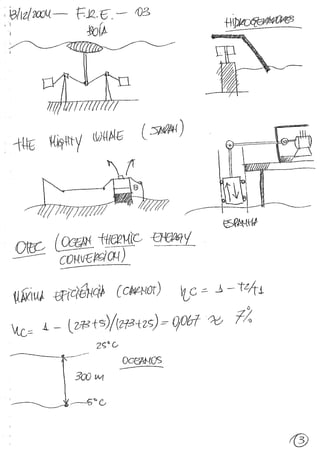 13/12/2004 — F.R.E. — 03
BOIA
HIDROGERADORES
THE MIGHTY WHALE (JAPAN)
B
ESPANHA
OTEC (OCEAN THERMIC ENERGY
CONVERSION)
MÁXIMA EFICIÊNCIA (CARNOT) ηC = 1 - T2/T1
ηC = 1 - (273+5)/(273+25) = 0,067 ≈ 7%
25°C
OCEANOS
300 m
5°C
3